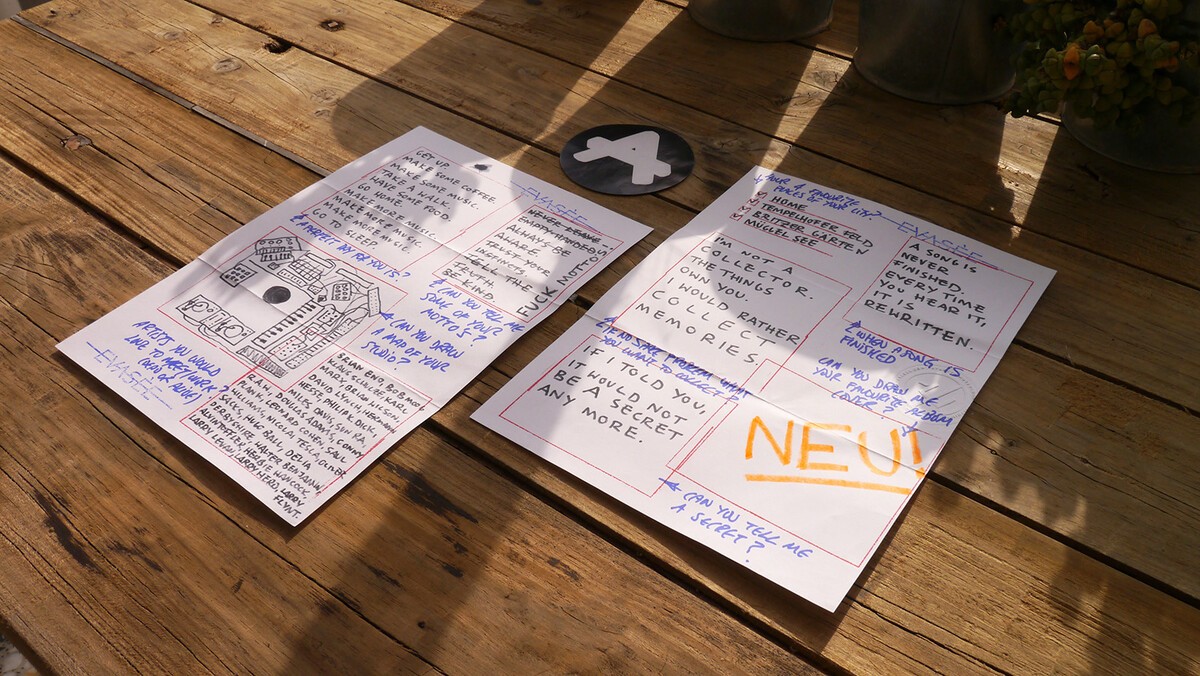 GET UP.
MAKE SOME COFFEE.
MAKE SOME MUSIC.
TAKE A WALK.
HAVE SOME FOOD.
GO HOME.
MAKE MORE MUSIC.
MAKE MORE MUSIC.
GO TO SLEEP.
A PERFECT DAY FOR YOU IS?
EVASÉE
NEVER LEAVE
EMPTY-HANDED
ALWAYS BE
AWARE.
TRUST YOUR
INSTINCTS.
TELL THE
TRUTH
BE KIND.
FUCK MOTTOS
CAN YOU TELL ME
SOME OF YOUR
MOTTOS?
CAN YOU DRAW
A MAP OF YOUR
STUDIO?
ARTISTS YOU WOULD
LIKE TO MEET/WORK
(DEAD OR ALIVE)
EVASÉE
BRIAN ENO, BOB MOOG
KLAUS SCHULZE, KARL
MARX, BRIAN WILSON,
DAVID LYNCH, HERMANN
HESSE, PHILIP K. DICK,
MILES DAVIS, SUN RA,
DOUGLAS ADAMS, CONNY
PLANK, LEONARD COHEN, SAUL
WILLIAMS, NICOLA TESLA, OLIVER
SACKS, HUGO BALL, DELIA
DERBYSHIRE, WALTER BENJAMIN
ALVIN TOFFLER, HERBIE HANCOCK,
LARRY LEVAN, LARRY HEARD, LARRY
FLYNT.
YOUR 4 FAVOURITE
PLACES OF YOUR CITY?
HOME
TEMPELHOFER FELD
BRITZER GARTEN
MÜGGEL SEE
EVASÉE
I'M NOT A
COLLECTOR.
THE THINGS
OWN YOU.
I WOULD RATHER
COLLECT
MEMORIES.
WHAT
YOU WANT TO COLLECT?
A SONG IS
NEVER
FINISHED.
EVERY TIME
YOU HEAR IT,
IT IS
REWRITTEN.
WHEN A SONG IS
FINISHED
CAN YOU DRAW ME
YOUR FAVOURITE ALBUM
COVER?
IF I TOLD YOU,
IT WOULD NOT
BE A SECRET
ANY MORE.
NEU!
CAN YOU TELL ME
A SECRET?